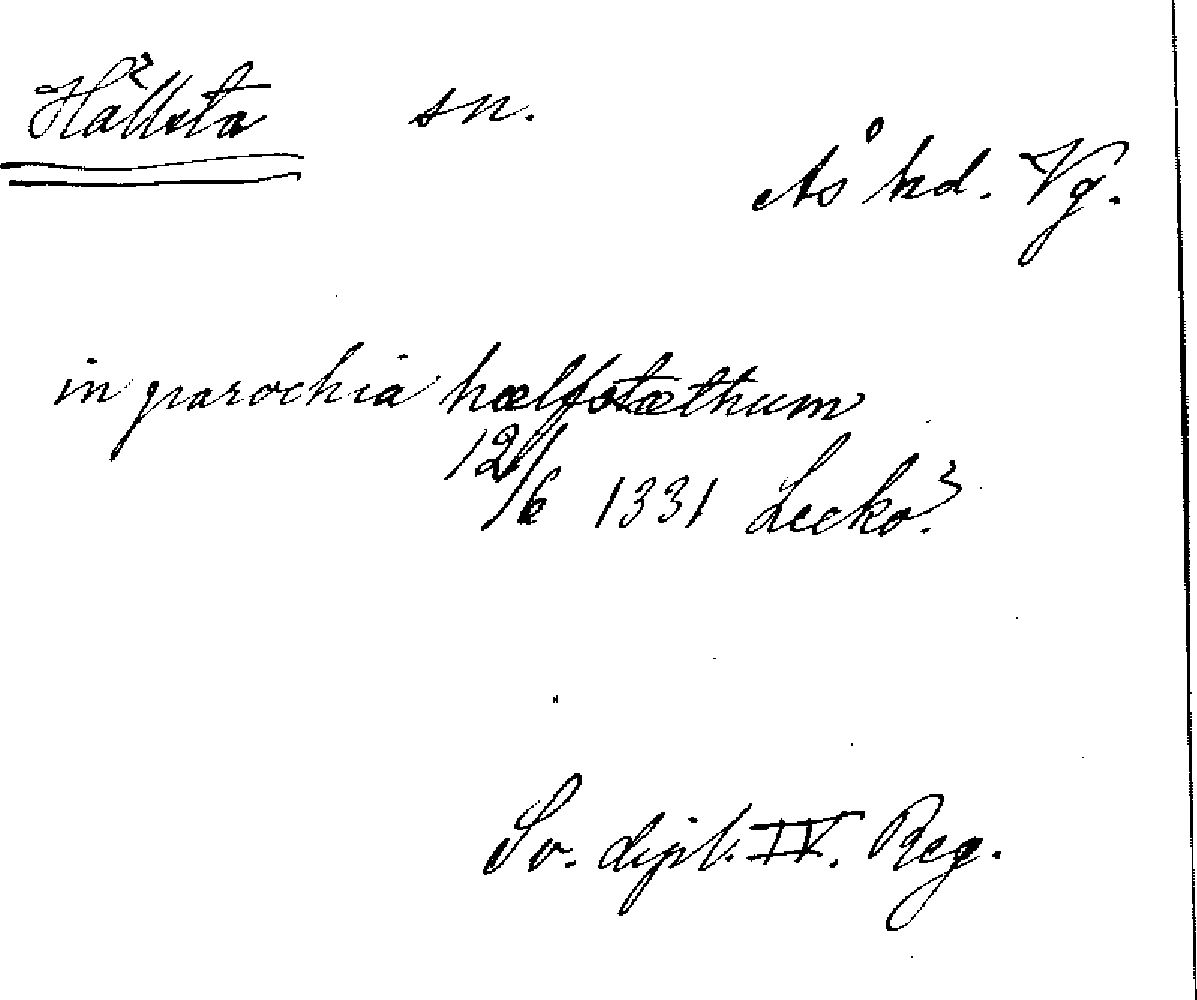 Hällsta sn.
Ås hd. Vg.
in parochia hælfstæthum
12/6 1331 Leckö?
Sv. dipl. IV. Reg.